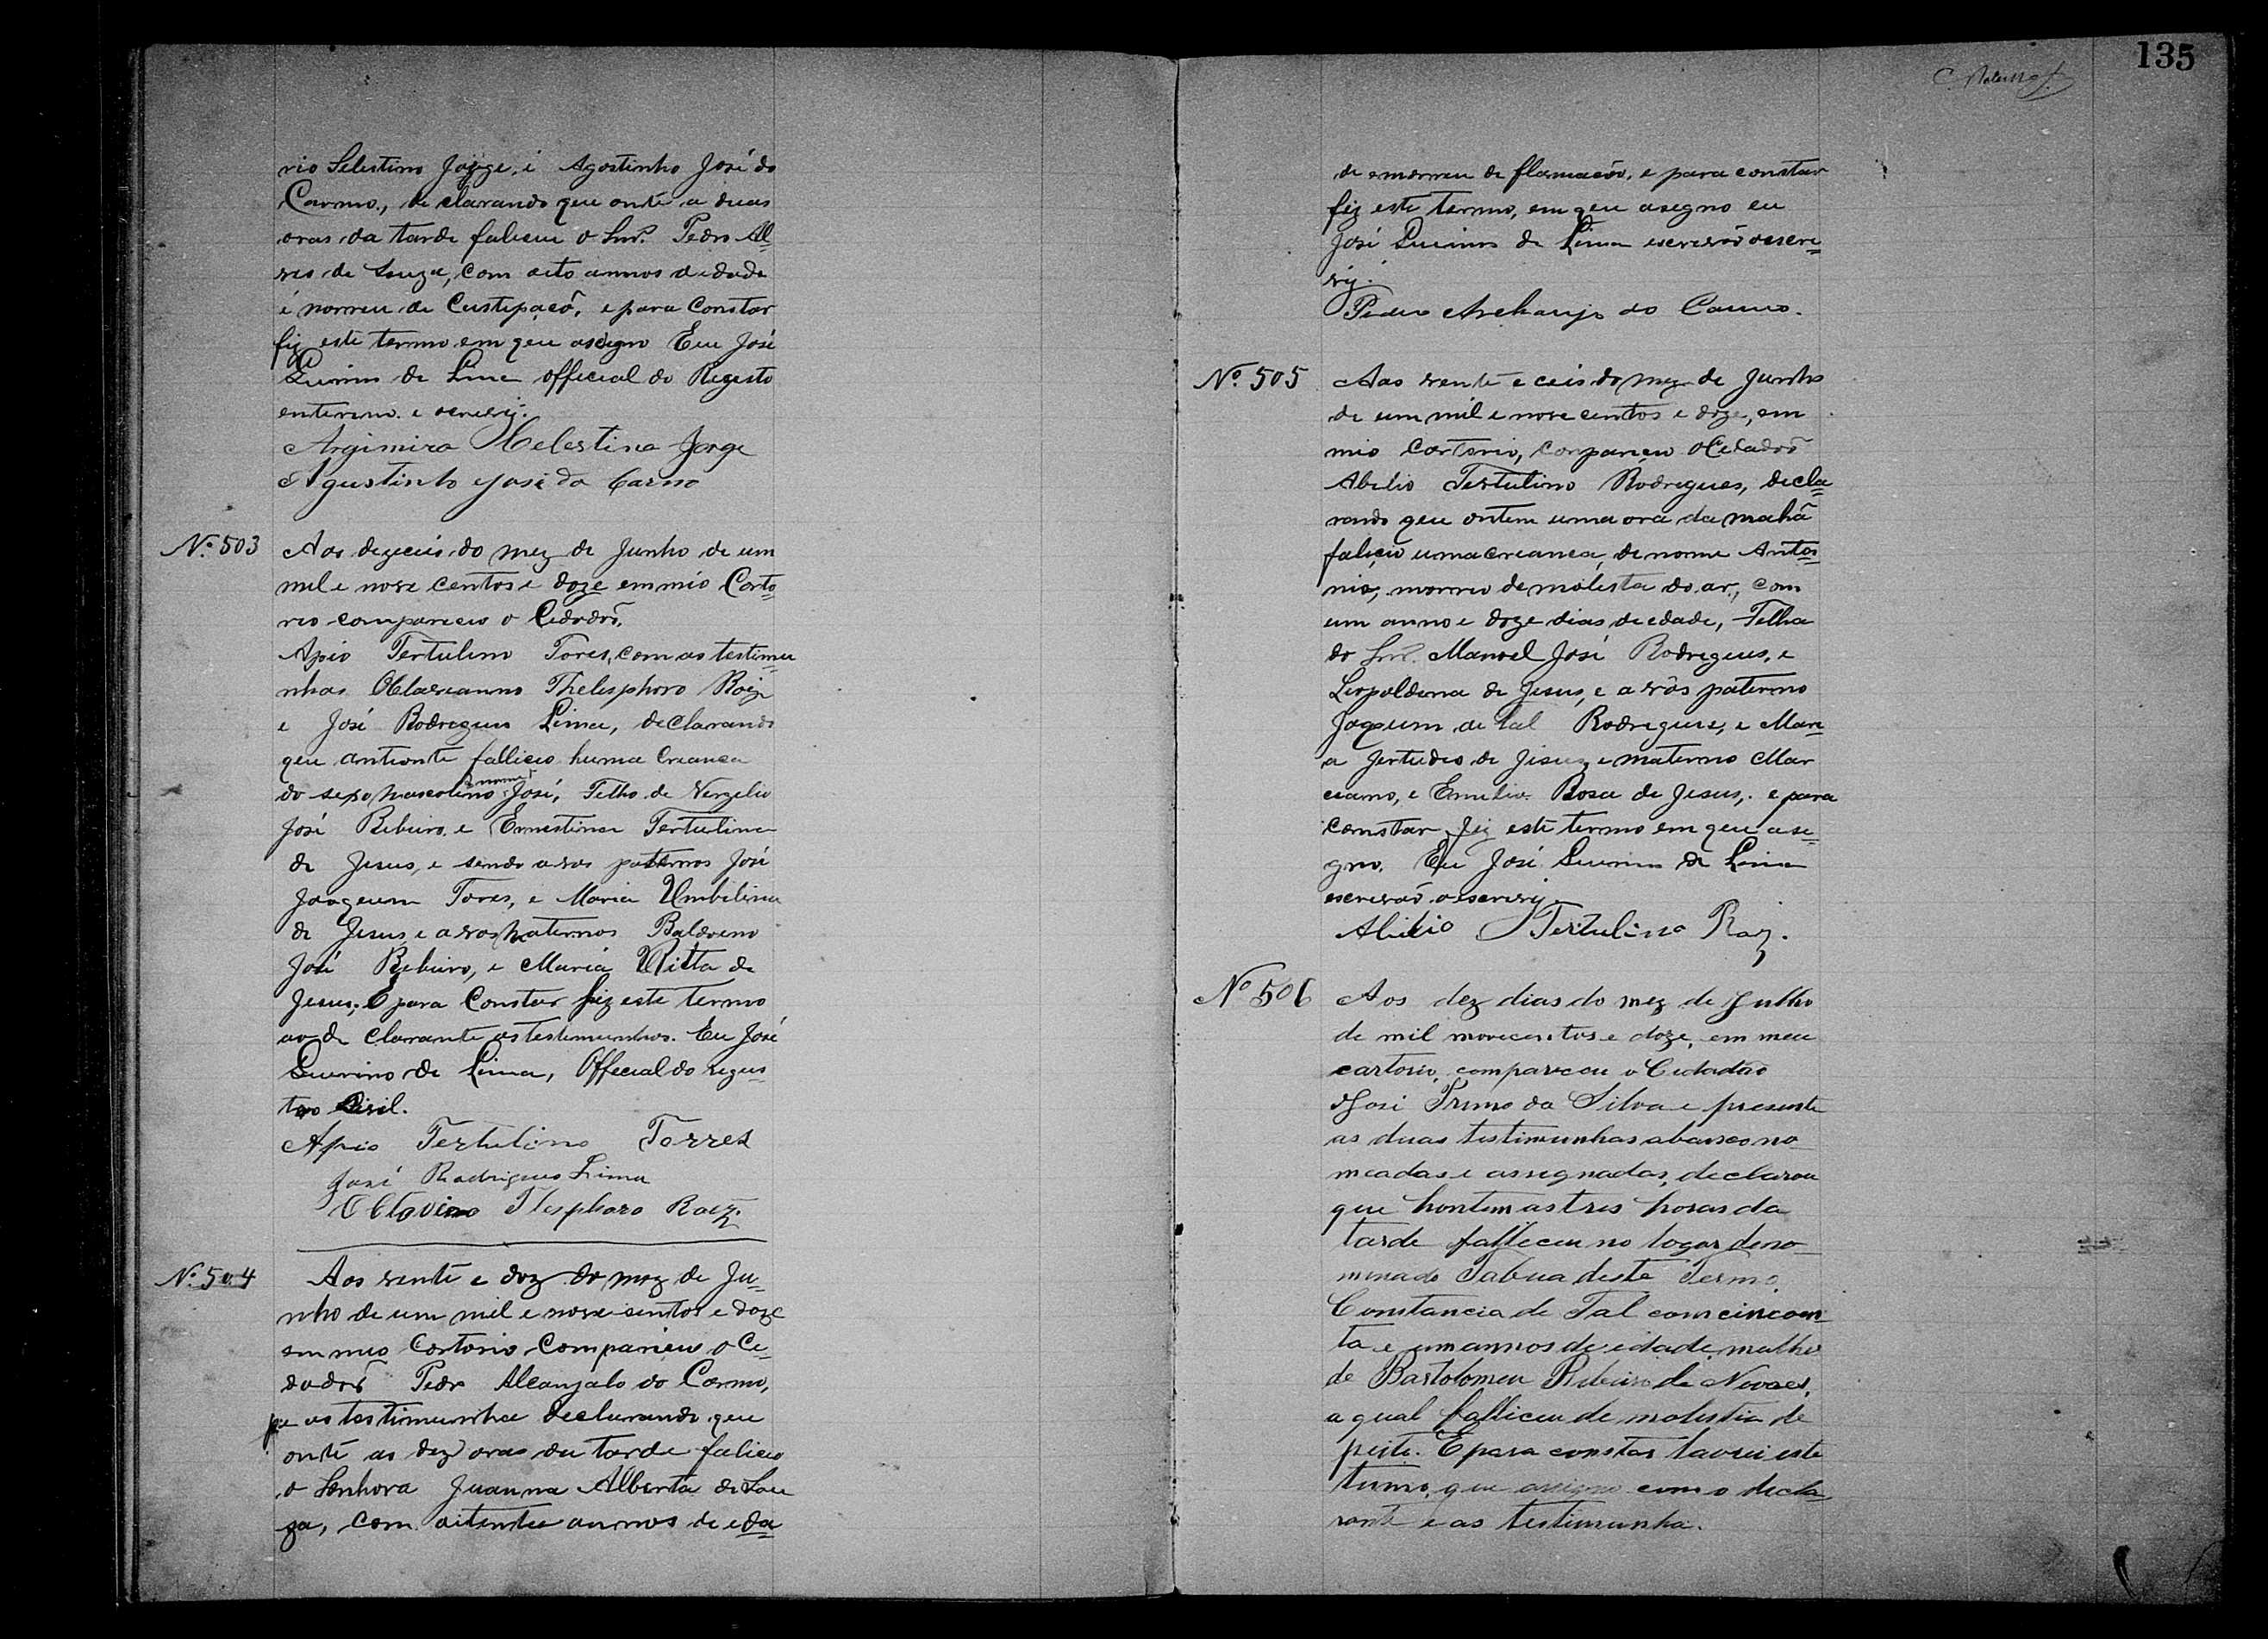 rio Selestino Jorge, i Agostinho José do
Carmo., de clarando que onte a duas
oras da tarde faliceu o Snr. Pedro Al=
ves de Souza, com oito annos didade
é morreu de Custipacô, e para Constar
fiz este termo em qeu asigno Eeu José
Quirino de Lima official do Regesto
enterino e escrevy.
Argimiro Celestino Jorge
Agustinho José do Carmo
Nº 503 Aos dezeceis do mez de Junho de um
mil e nove centos e doze em mio Carto=
reo compareceo o Cidodõ,
Apio Tertulino Tores, com as testimu=
nhas Octavianno Thelesphoro Roiz
e José Rodregues Lima, declarando
qeu antionte falliceo huma Creanca
do sexo mascolino de nome José, Felho de Vergelio
José Rebeiro, e Ernestina Tertulina
de Jesus, e sendo avos paternos José
Joaqeum Tores, e Maria Umbilina
de Jesus, e avos maternos Baldoeno
José Rebeiro, e Maria Ritta de
Jesus; E para Constar fiz este termo
ao de clarante as testemunhas. Eu José
Quirino de Lima, Offecial do regis=
tro Sivil.
Apio Tertulino Torres
José Rodrigues Lima
Octavino Tlesphoro Roiz.
Nº 504 Aos vente e doz do mez de Ju=
nho de um mil e nove sentos e doze
em meo Cortorio Compariceu o Ce=
dadõ Pedro Alcanjalo do Carmo,
pe as testimunha declarando qeu
onte as dez oras da tarde faliceo
a Senhora Juanna Alberta de Sou
za, com oitenta annos de eda=
135
de e morreu de flamacão, e para constar
fiz este termo, em qeu asegno eu
José Quirino de Lima escrivão o escre=
vy.
Pedro Archanjo do Carmo.
Nº 505 Aos vente e ceis do mez de Junho
de um mil e nove centos e doze, em
mio Cartorio, conpareceu o Cidadõ
Abilio Tertulino Rodregues, decla=
rando qeu ontem uma ora da mahã
faliceu uma creanca, de nome Anto=
nia, morreu de molesta do ar, com
um anno e doze dias de edade, Felha
do Snr. Manoel José Rodregues, e
Leopoldina de Jesus, e a vôs paterno
Joaqeum de tal Rodregues, e Mari=
a Jertudes de Jesus, e materno Mar
ciano, e Emelia Rosa de Jesus,. e para
constar fiz este termo em qeu ase=
gno. Eu José Quirino de Lima
escrevão o escrevy.
Abilio Tertulino Roiz.
Nº 506 Aos dez dias do mez de Julho
de mil novecentos e doze, em meu
cartorio, compareceu o Cidadão
José Primo da Silva e presente
as duas testimunhas abaixo no
meadas e assignadas, declarou
que hontem as tres horas da
tarde falleceu no logar deno
minado Tabua deste Termo,
Constancia de Tal com cincoen
ta e um annos de idade, mulher
de Bartolomeu Ribeiro de Novaes,
a qual falliceu de molestia de
peito. E para constar lavrei este
termo, que assigno com o decla
rante e as testimunha.